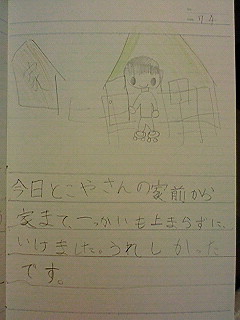 家
今日とこやさんの家前から
家まで、一っかいも止まらずに、
いけました。うれしかった
です。